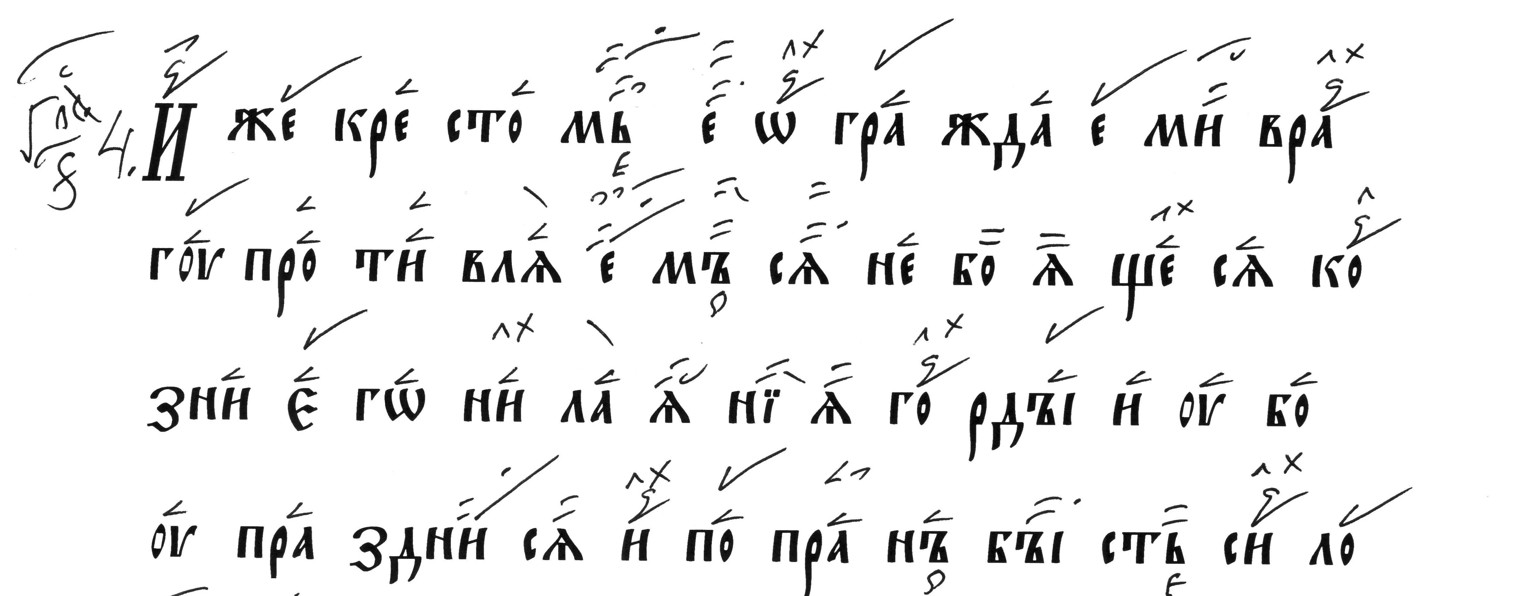 И же кре сто мь е ѡ гра жда е ми вра
гоу про ти влѧ е мъ сѧ не бо ѧ ше сѧ ко
зни є гѡ ни ла ѧ нї ѧ го рдъі и оу бо
оу пра здни сѧ и по пра нъ бъі сть си ло